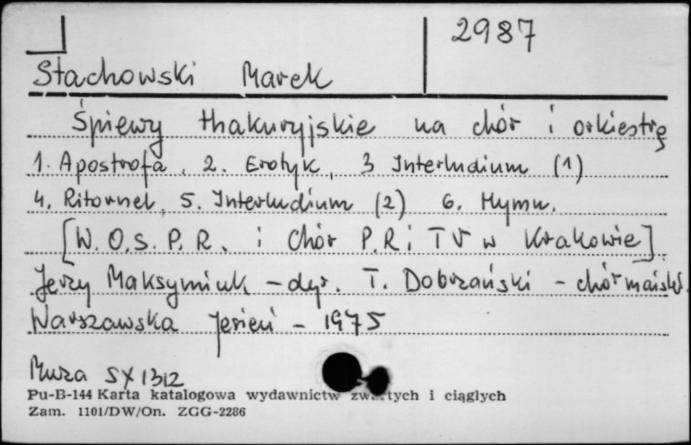 2987
Stachowski Marek
Śpiewy thakuryjskie na chór i orkiestrę
1. Apostrofa, 2. Erotyk, 3 Interludium (1)
4. Ritornel, 5. Interludium (2) 6. Hymn.
[W.O.S.P.R. i Chór P.R i TV w Krakowie]
Jerzy Maksymiuk - dyr. T. Dobrzański - chórmaistrz.
Warszawska Jesień - 1975
Muza SX 1312
Pu-B-144 Karta katalogowa wydawnictw zwartych i ciągłych
Zam. 1101/DW/On. ZGG-2286